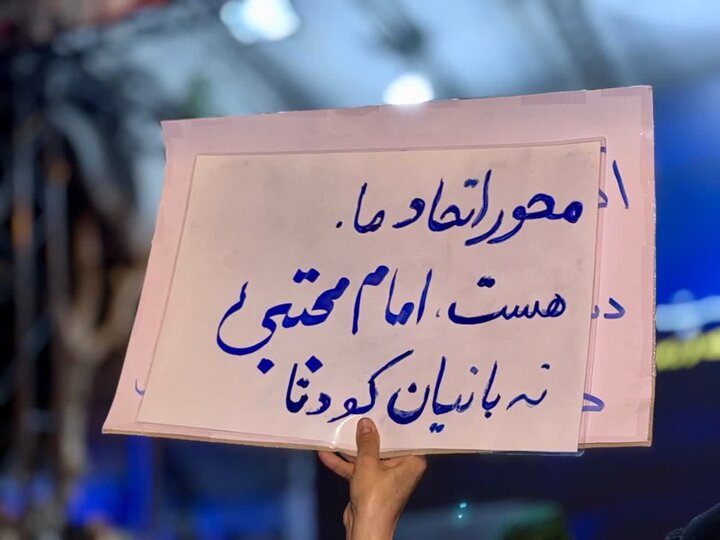 محور اتحاد ما.
هست، امام مجتبی
نه بانیان کودتا